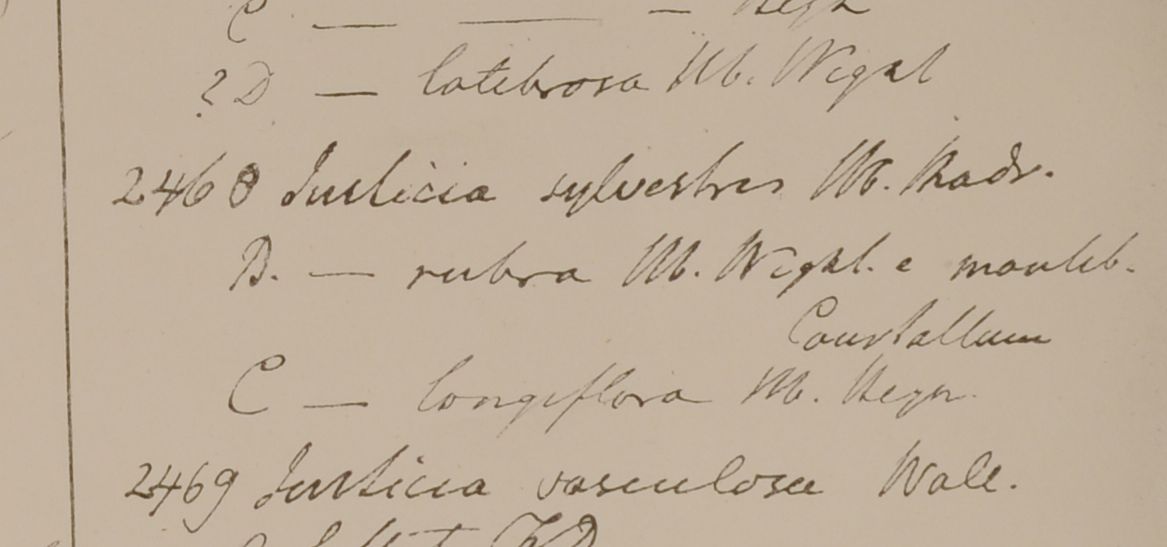 C — — — Heyn
?D — latebrosa Hb. Wight
2468 Justicia sylvestris Hb. Madr.
B. — rubra Hb. Wight. e montib.
Courtallum
C — longiflora Hb. Heyn.
2469 Justicia vasculosa Wall.